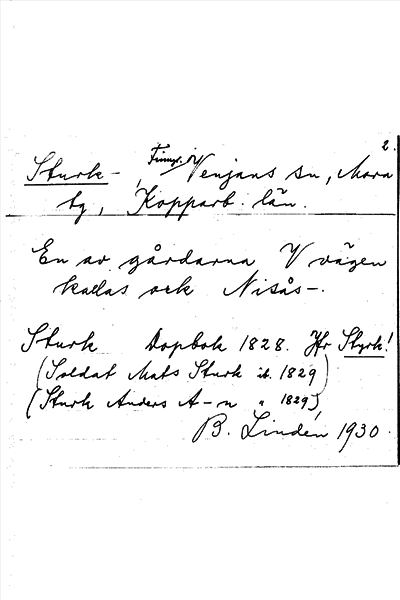 2.
Sturk-, Finngr. i Venjans sn, Mora
tg, Kopparb. län.
En av gårdarna V vägen
kallas ock Nisås-.
Sturk Dopbok 1828. Jfr Styrk!
(Soldat Mats Sturk ib. 1829)
(Sturk Anders A-n " 1829),
B. Lindén 1930.